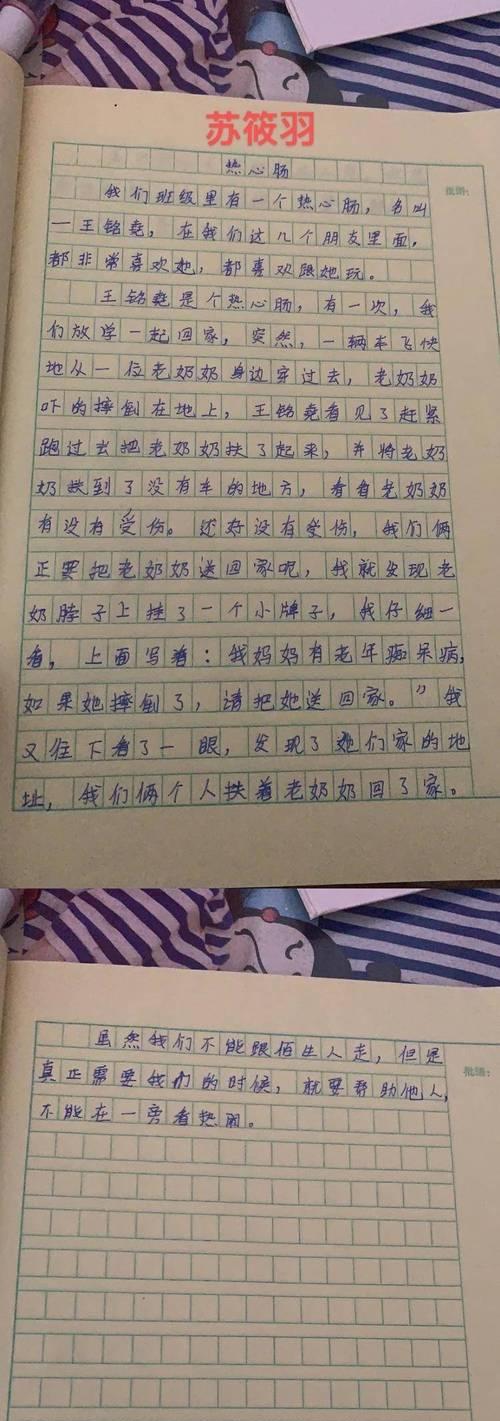 苏筱羽
热心肠
批语:
我们班级里有一个热心肠，名叫
一王铭尧，在我们这几个朋友里面，
都非常喜欢她，都喜欢跟她玩。
王铭尧是个热心肠，有一次，我
们放学一起回家，突然，一辆车飞快
地从一位老奶奶身边穿过去，老奶奶
吓的摔倒在地上，王铭尧看见了赶紧
跑过去把老奶奶扶了起来，并将老奶
奶扶到了没有车的地方，看看老奶奶
有没有受伤。还好没有受伤，我们俩
正要把老奶奶送回家呢，我就发现老
奶脖子上挂了一个小牌子，我仔细一
看，上面写着：我妈妈有老年痴呆病，
如果她摔倒了，请把她送回家。”我
又往下看了一眼，发现了她们家的地
址，我们俩个人扶着老奶奶回了家。
虽然我们不能跟陌生人走，但是
批语:
真正需要我们的时候，就要帮助他人，
不能在一旁看热闹。